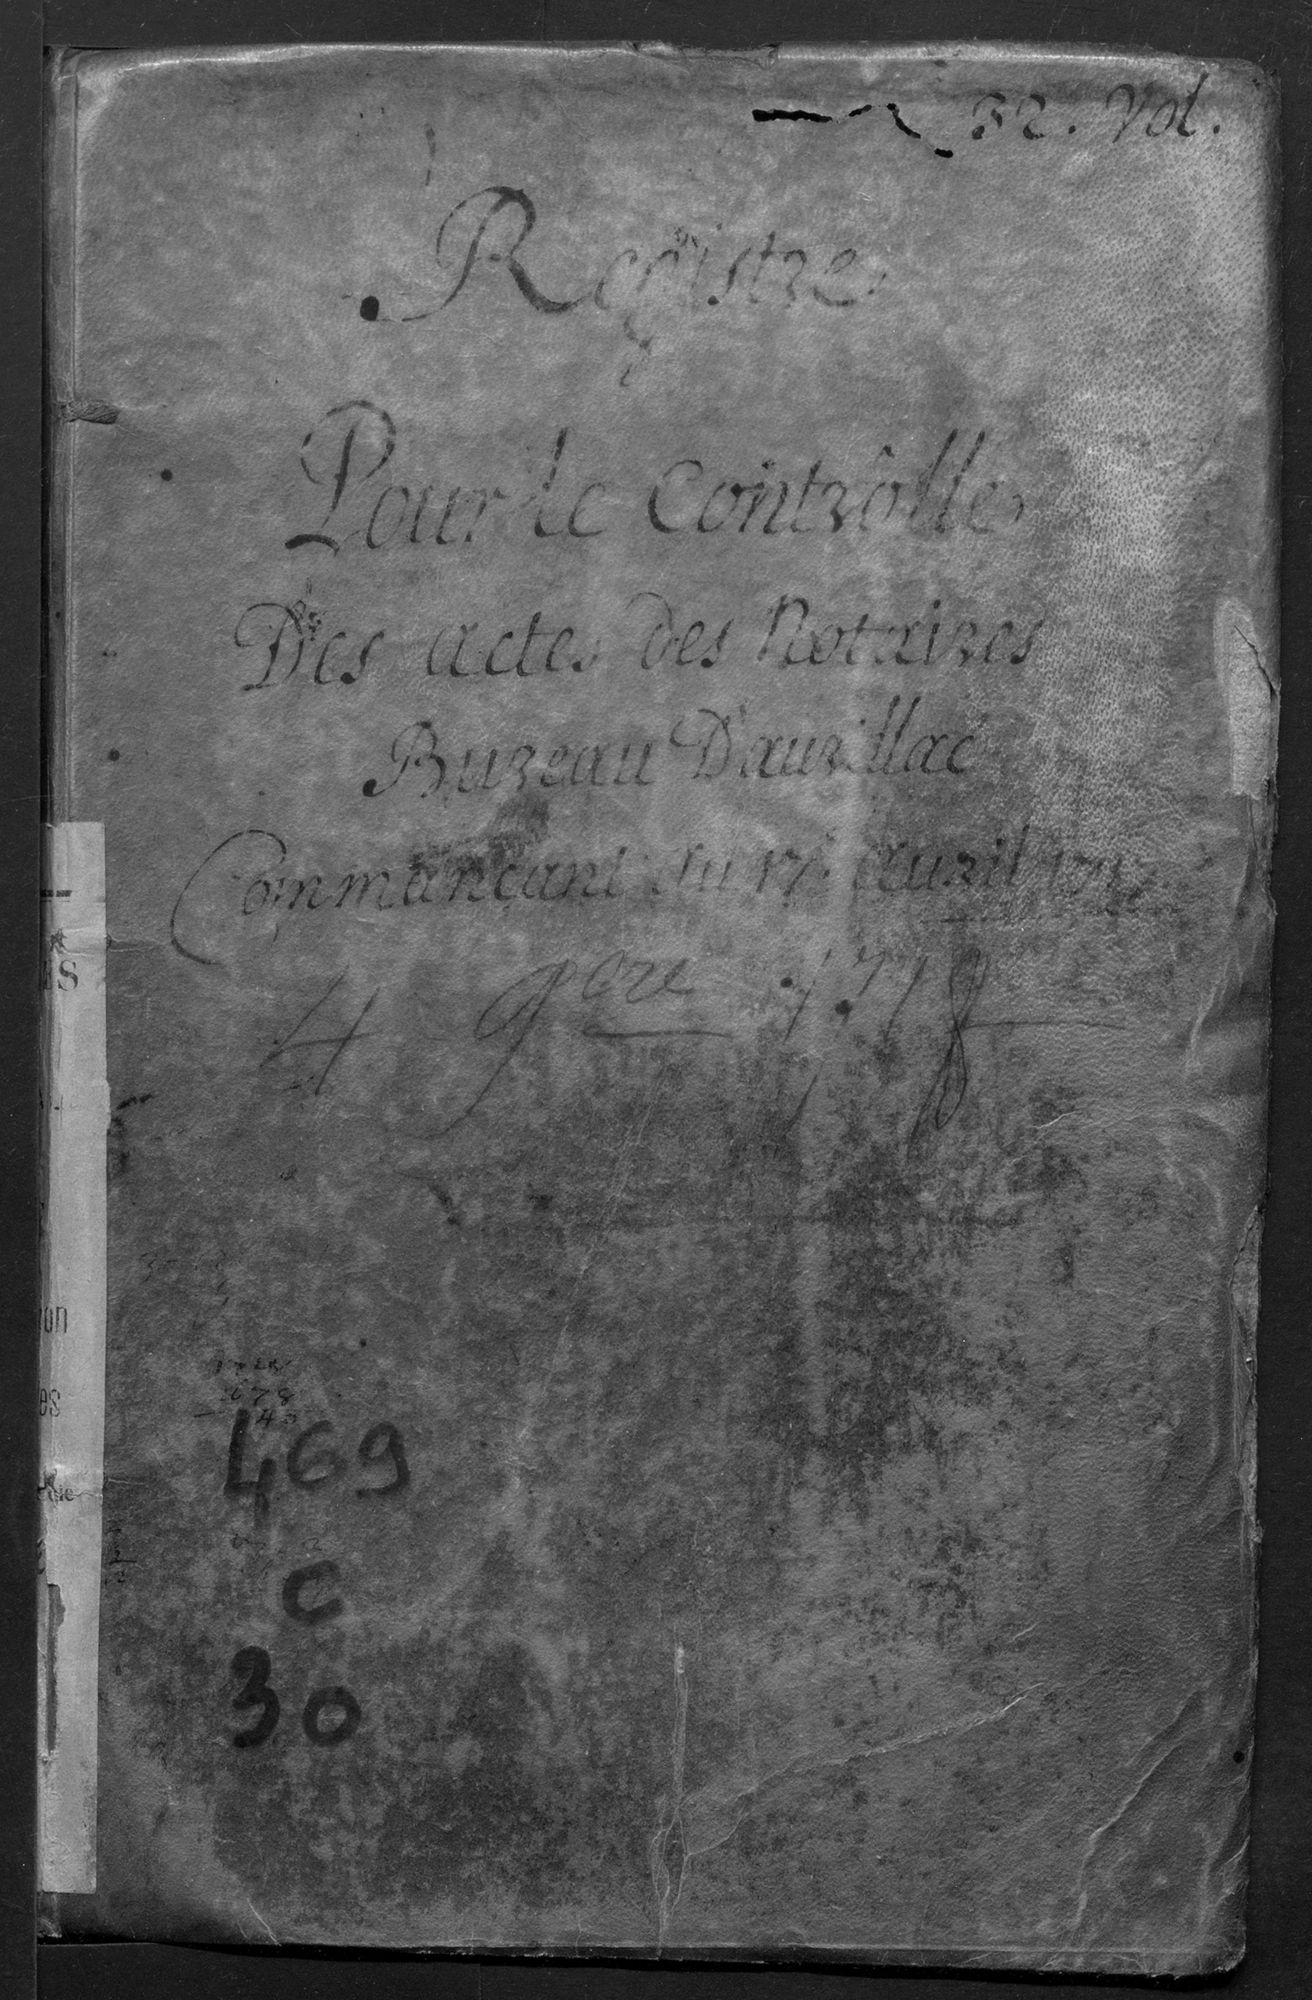 32. Vol.
Registre
Pour le Controlle
Des actes des Notaires
Bureau D'aurillac
Commançant du 17e auril 1717
4 9bre 1718
ES
on
es
678
469
C
30